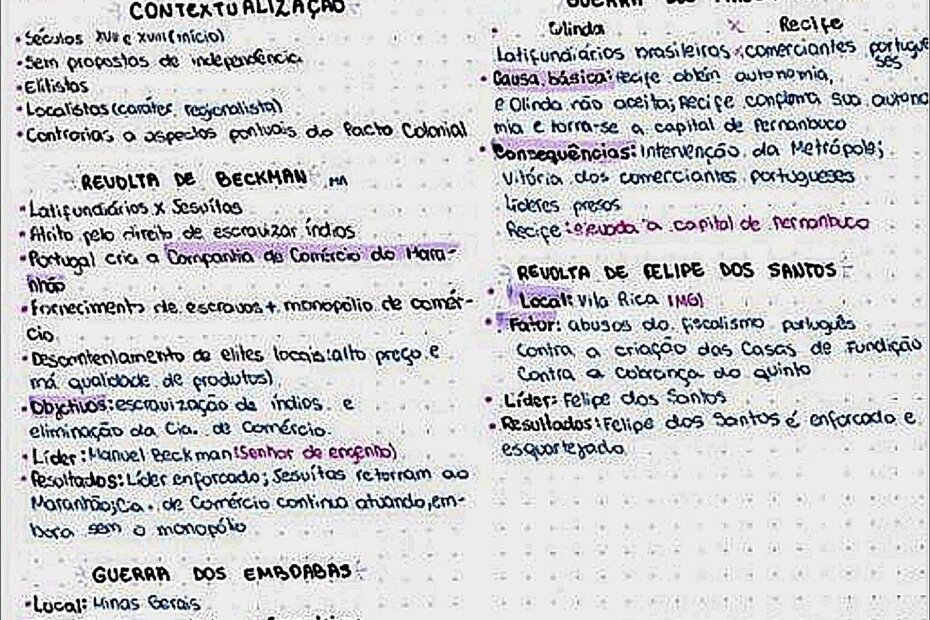 CONTEXTUALIZAÇÃO
• Séculos XVII e XVIII (início)
• Sem propostas de independência
• Elitistas
• Localistas (caráter regionalista)
• Contrárias a aspectos pontuais do Pacto Colonial
REVOLTA DE BECKMAN MA
• Latifundiários x Jesuítas
• Atrito pelo direito de escravizar índios
• Portugal cria a Companhia de Comércio do Mara-
nhão
• Fornecimento de escravos + monopólio de comér-
cio
• Descontentamento de elites locais: alto preço e
má qualidade de produtos)
• Objetivos: escravização de índios e
eliminação da Cia. de Comércio.
• Líder: Manuel Beckman (Senhor de engenho)
• Resultados: Líder enforcado; Jesuítas retornam ao
Maranhão; Ca. de Comércio continua atuando, em-
bora sem o monopólio
GUERRA DOS EMBOABAS
• Local: Minas Gerais
GUERRA DOS
• Olinda x Recife
Latifundiários brasileiros x comerciantes portugue
ses
• Causa básica: Recife obtém autonomia,
e Olinda não aceita; Recife confirma sua autono
mia e torna-se a capital de Pernambuco
• Consequências: Intervenção da Metrópole;
Vitória dos comerciantes portugueses
Líderes presos
Recife: elevada a capital de Pernambuco
REVOLTA DE FELIPE DOS SANTOS
• Local: Vila Rica (MG)
• Fator: abusos do fiscalismo português
Contra a criação das Casas de Fundição
Contra a cobrança do quinto
• Líder: Felipe dos Santos
• Resultados: Felipe dos Santos é enforcado e
esquartejado